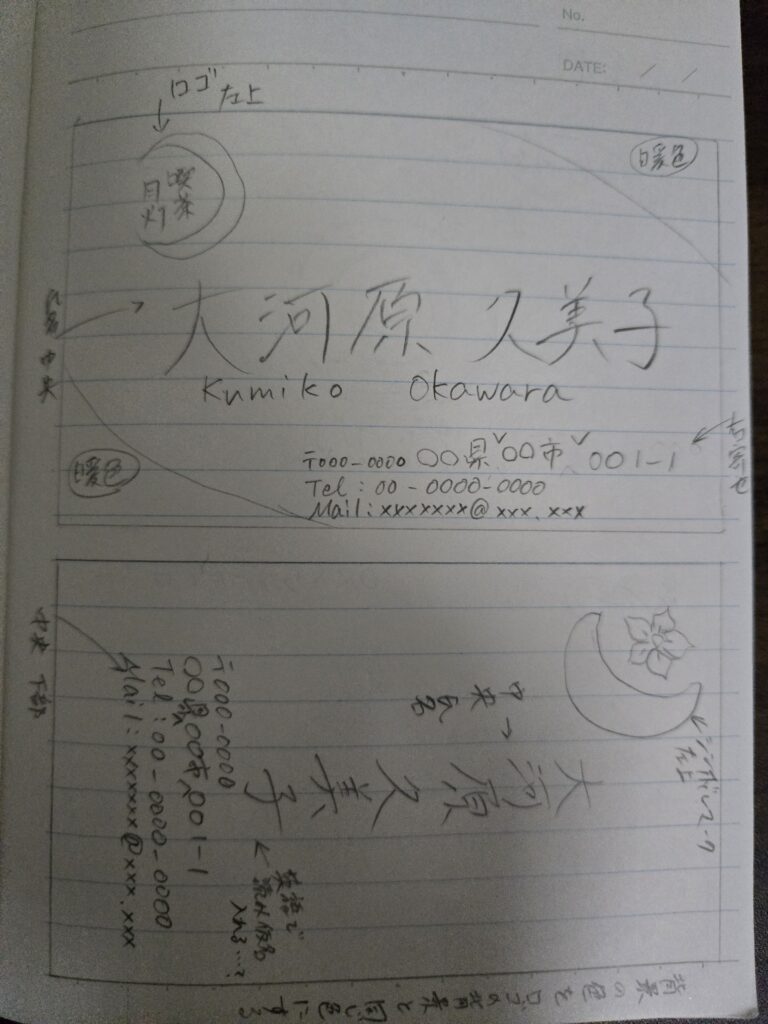 No.
DATE: / /
ロゴ 左上
暖色
喫茶
月灯
氏名 中央
大河原 久美子
Kumiko Okawara
右寄せ
暖色
〒000-0000 〇〇県〇〇市 001-1
Tel : 00-0000-0000
Mail : xxxxxxx@xxx.xxx
シンボルマーク
左上
中央
氏名
大河原久美子
英語で
読み仮名
入れる…?
中央 下部
〒000-0000
〇〇県〇〇市001-1
Tel : 00-0000-0000
Mail : xxxxxxx@xxx.xxx
背景の色をロゴの背景と同じ色にする